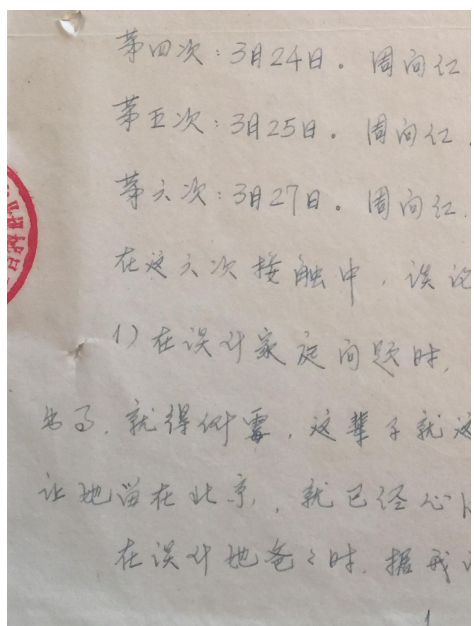 第四次:3月24日。周向红
第五次:3月25日。周向红.
第六次:3月27日。周向红.
在这六次接触中,谈论
1)在谈到家庭问题时,
当了,就得倒霉,这辈子就这
让她留在北京,就已经心
在谈到她爸々时,据我
1